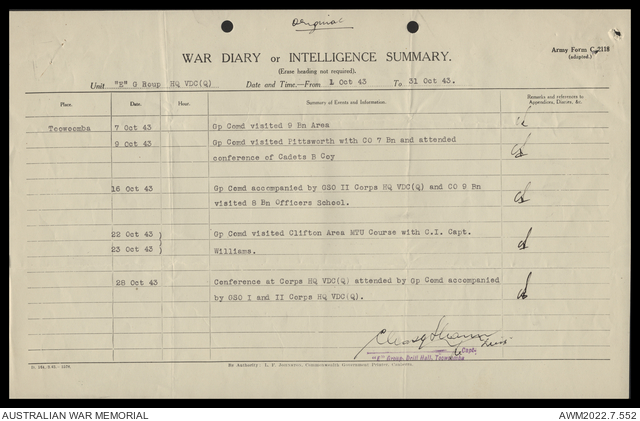 Original
WAR DIARY or INTELLIGENCE SUMMARY.
Army Form C.2118
(adapted.)
(Erase heading not required).
Unit "E" G Roup HQ VDC(Q) Date and Time.—From 1 Oct 43 To 31 Oct 43.
Place. Date. Hour. Summary of Events and Information. Remarks and references to Appendices, Diaries, &c.
Toowoomba 7 Oct 43 Gp Comd visited 9 Bn Area
9 Oct 43 Gp Comd visited Pittsworth with CO 7 Bn and attended
conference of Cadets B Coy
16 Oct 43 Gp Comd accompanied by GSO II Corps HQ VDC(Q) and CO 9 Bn
visited 8 Bn Officers School.
22 Oct 43 ) Gp Comd visited Clifton Area MTU Course with C.I. Capt.
23 Oct 43 ) Williams.
28 Oct 43 Conference at Corps HQ VDC(Q) attended by Gp Comd accompanied
by GSO I and II Corps HQ VDC(Q).
Capt.
"E" Group, Drill Hall, Toowoomba
By Authority: L. F. Johnston, Commonwealth Government Printer, Canberra.
AUSTRALIAN WAR MEMORIAL
AWM2022.7.552